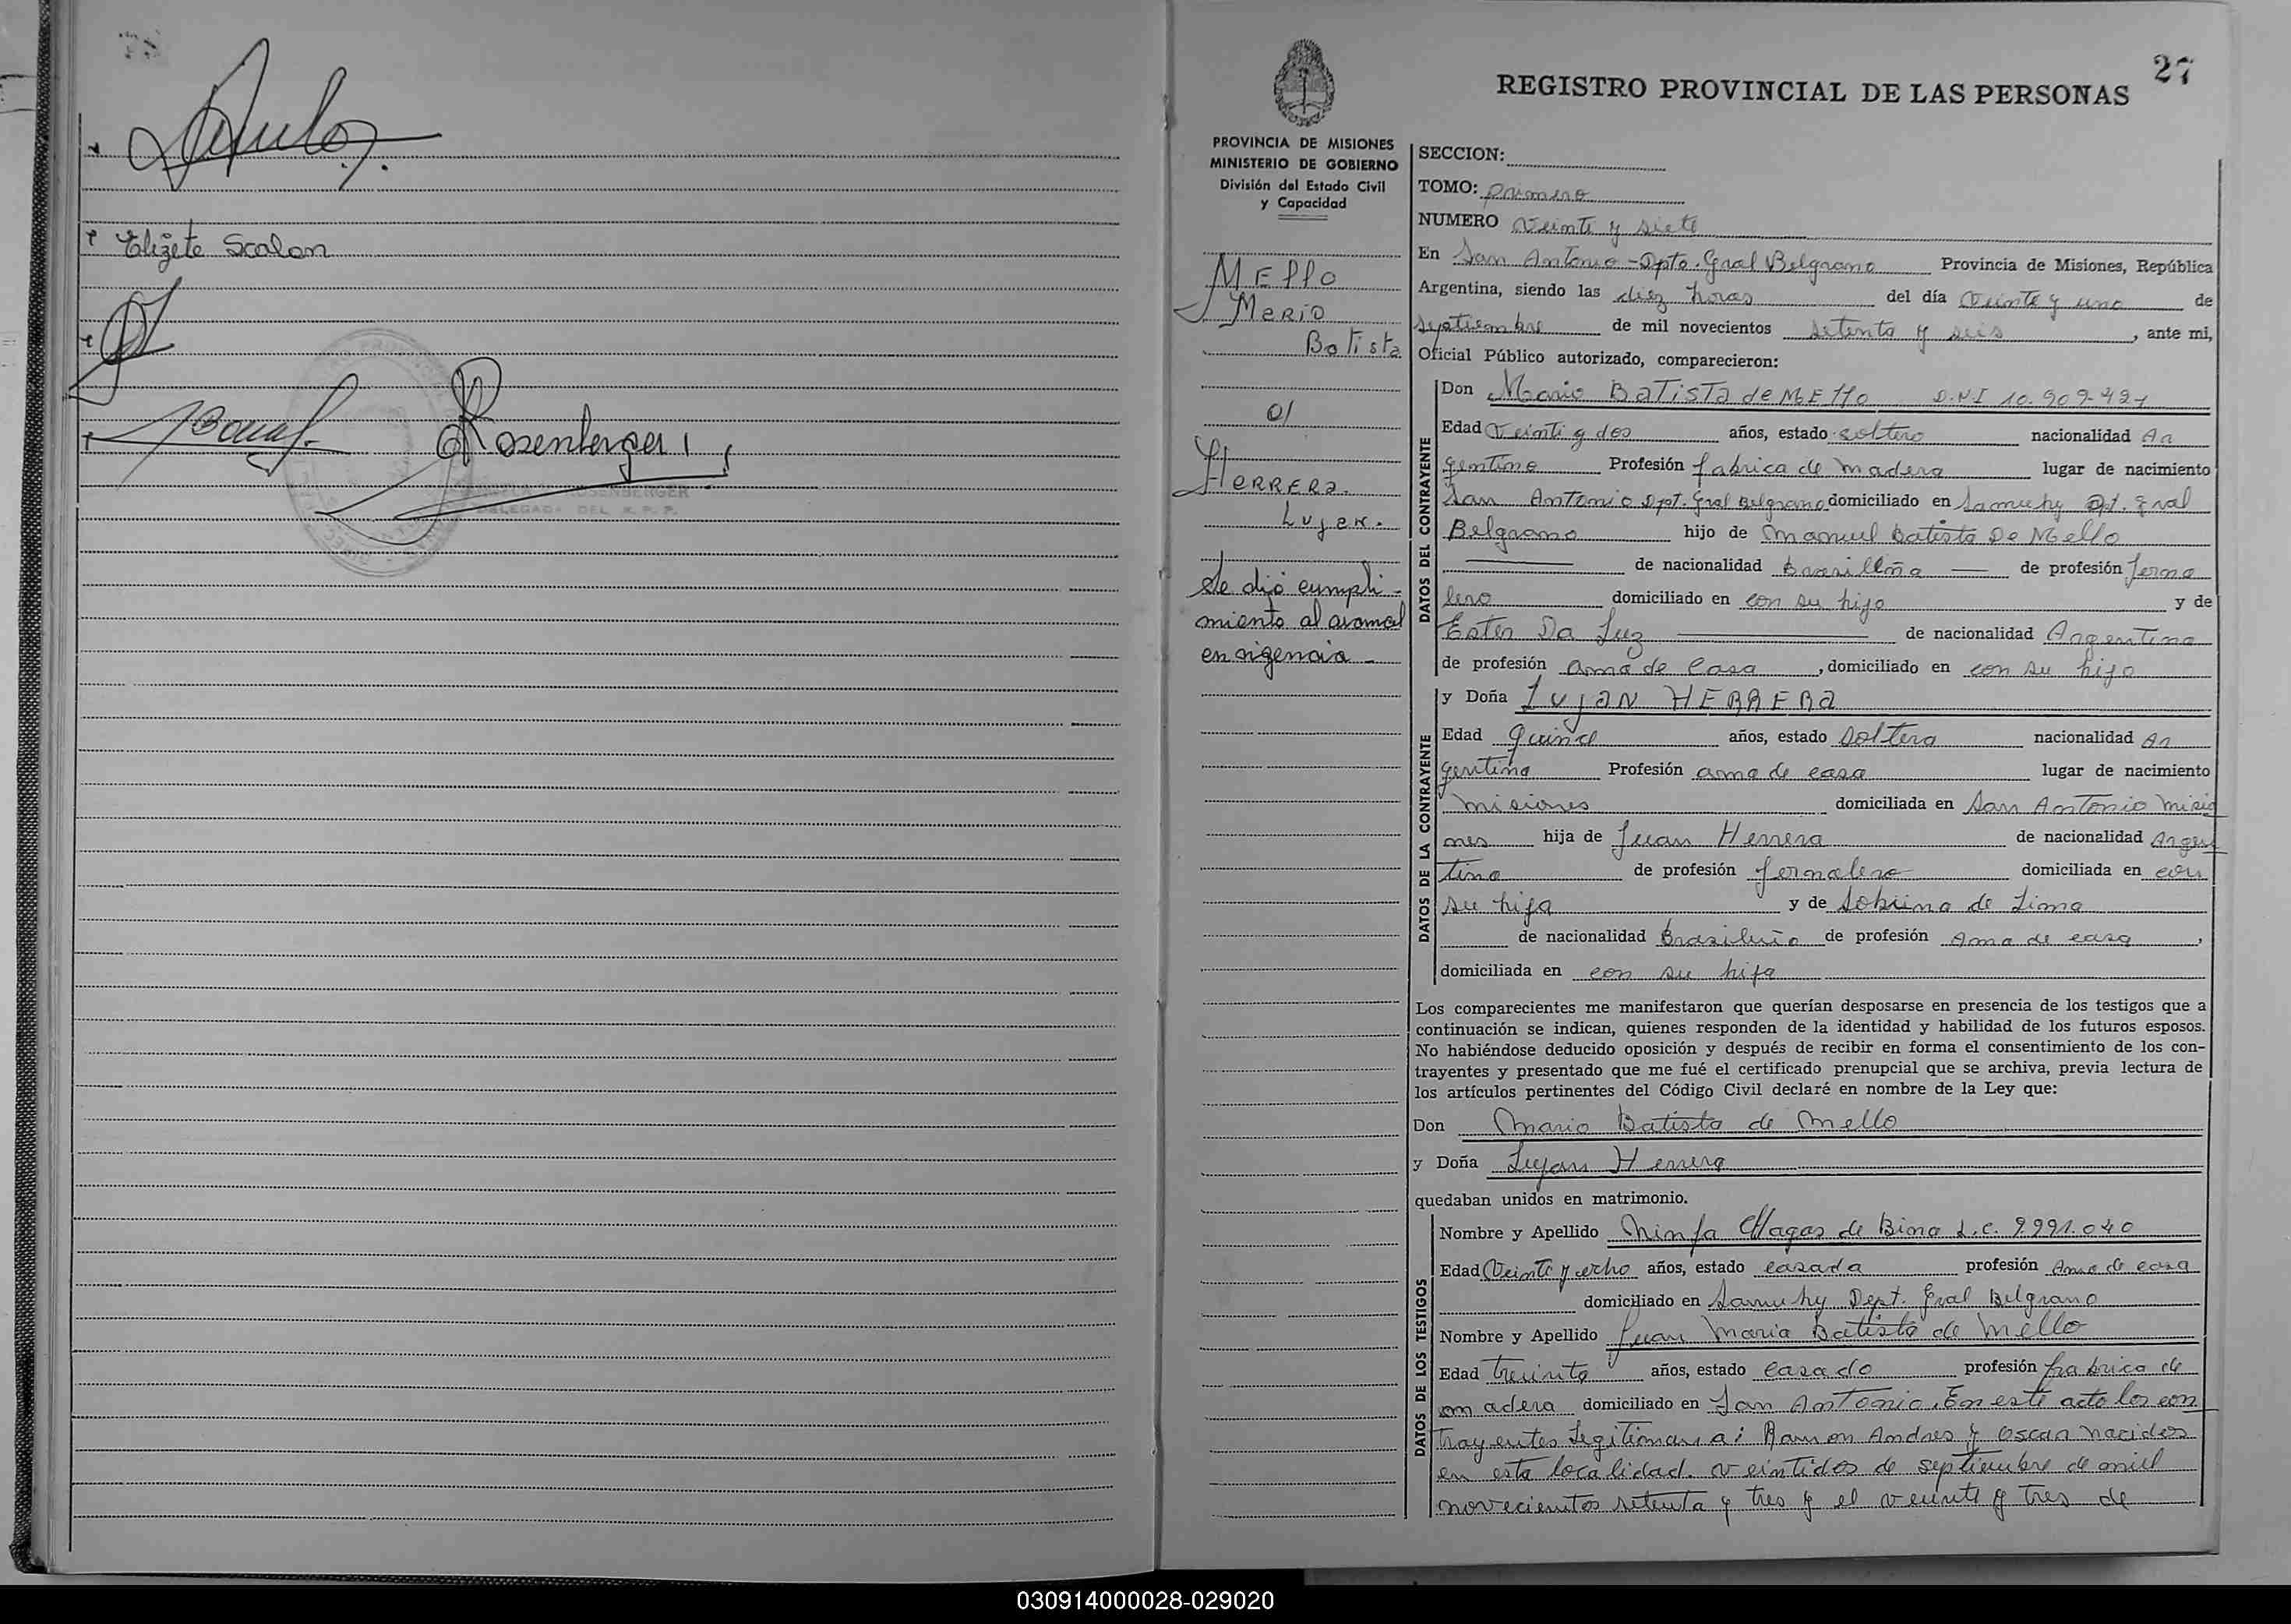 Elizete Scalon
Rosenberger
ROSENBERGER
DELEGADA DEL R. P. P.
27
REGISTRO PROVINCIAL DE LAS PERSONAS
PROVINCIA DE MISIONES
MINISTERIO DE GOBIERNO
División del Estado Civil
y Capacidad
Mello
Mario
Batista
c/
Herrera
Lujan.
Se dió cumpli-
miento al arancel
en vigencia -
SECCION:
TOMO: primero
NUMERO Veinte y siete
En San Antonio - Dpto. Gral Belgrano Provincia de Misiones, República
Argentina, siendo las diez horas del día Veinte y uno de
septiembre de mil novecientos setenta y seis, ante mi,
Oficial Público autorizado, comparecieron:
DATOS DEL CONTRAYENTE
Don Mario Batista de Mello D.N.I 10.909.421
Edad Veinti y dos años, estado soltero nacionalidad Ar
gentino Profesión fabrica de madera lugar de nacimiento
San Antonio Dpt. Gral Belgrano domiciliado en Samuhy Dpt. Gral
Belgrano hijo de Manuel Batista De Mello
de nacionalidad Brasilleña de profesión Jorna
lero domiciliado en con su hijo y de
Ester Da Luz de nacionalidad Argentina
de profesión ama de casa, domiciliado en con su hijo
DATOS DE LA CONTRAYENTE
y Doña Lujan HERRERA
Edad quince años, estado soltera nacionalidad Ar
gentina Profesión ama de casa lugar de nacimiento
misiones domiciliada en San Antonio Misio
nes hija de Juan Herrera de nacionalidad Argen
tino de profesión Jornalero domiciliada en con
su hija y de Sobrina de Lima
de nacionalidad Brasileño de profesión Ama de casa,
domiciliada en con su hija
Los comparecientes me manifestaron que querían desposarse en presencia de los testigos que a
continuación se indican, quienes responden de la identidad y habilidad de los futuros esposos.
No habiéndose deducido oposición y después de recibir en forma el consentimiento de los con-
trayentes y presentado que me fué el certificado prenupcial que se archiva, previa lectura de
los artículos pertinentes del Código Civil declaré en nombre de la Ley que:
Don Mario Batista de Mello
y Doña Lujan Herrera
quedaban unidos en matrimonio.
DATOS DE LOS TESTIGOS
Nombre y Apellido Ninfa Chagas de Bino L.C. 9.991.040
Edad Veinte y ocho años, estado casada profesión Ama de casa
domiciliado en Samuhy Dept. Gral Belgrano
Nombre y Apellido Juan Maria Batista de Mello
Edad treinta años, estado casado profesión fabrica de
madera domiciliado en San Antonio. En este acto los con
trayentes legitiman a: Ramon Andres y Oscar nacidos
en esta localidad. veintidos de septiembre de mil
novecientos setenta y tres y el veinte y tres de
030914000028-029020